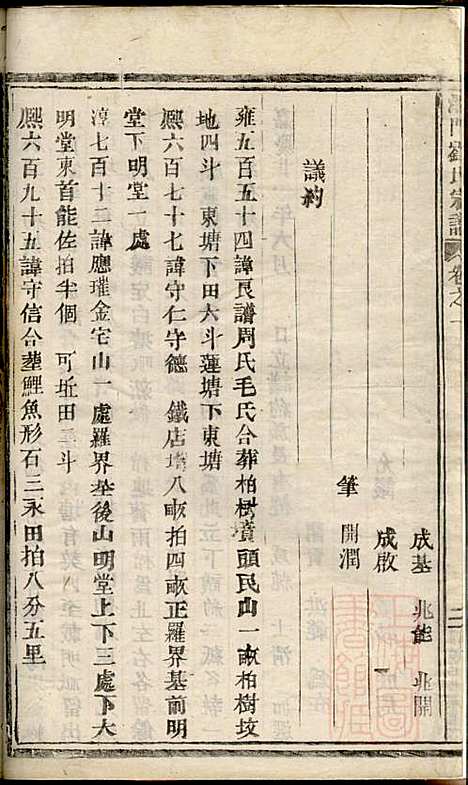 劉氏宗譜 卷之一
成基 兆能 兆開
成啟
筆 開潤
議約
雍五百五十四諱良譜周氏毛氏合葬柏樹墳頭民山一畝柏樹坟
地四斗 東塘下田六斗蓮塘下東塘
熈六百七十七諱守仁守德 鐵店塔八畝拍四畝正羅界基前明
堂下明堂一處
淳七百十二諱應璀金宅山一處羅界坐後山明堂上下三處下大
明堂東首能佐拍半個 可坵田三斗
熈六百九十五諱守信合葬鯉魚形石三永田拍八分五里